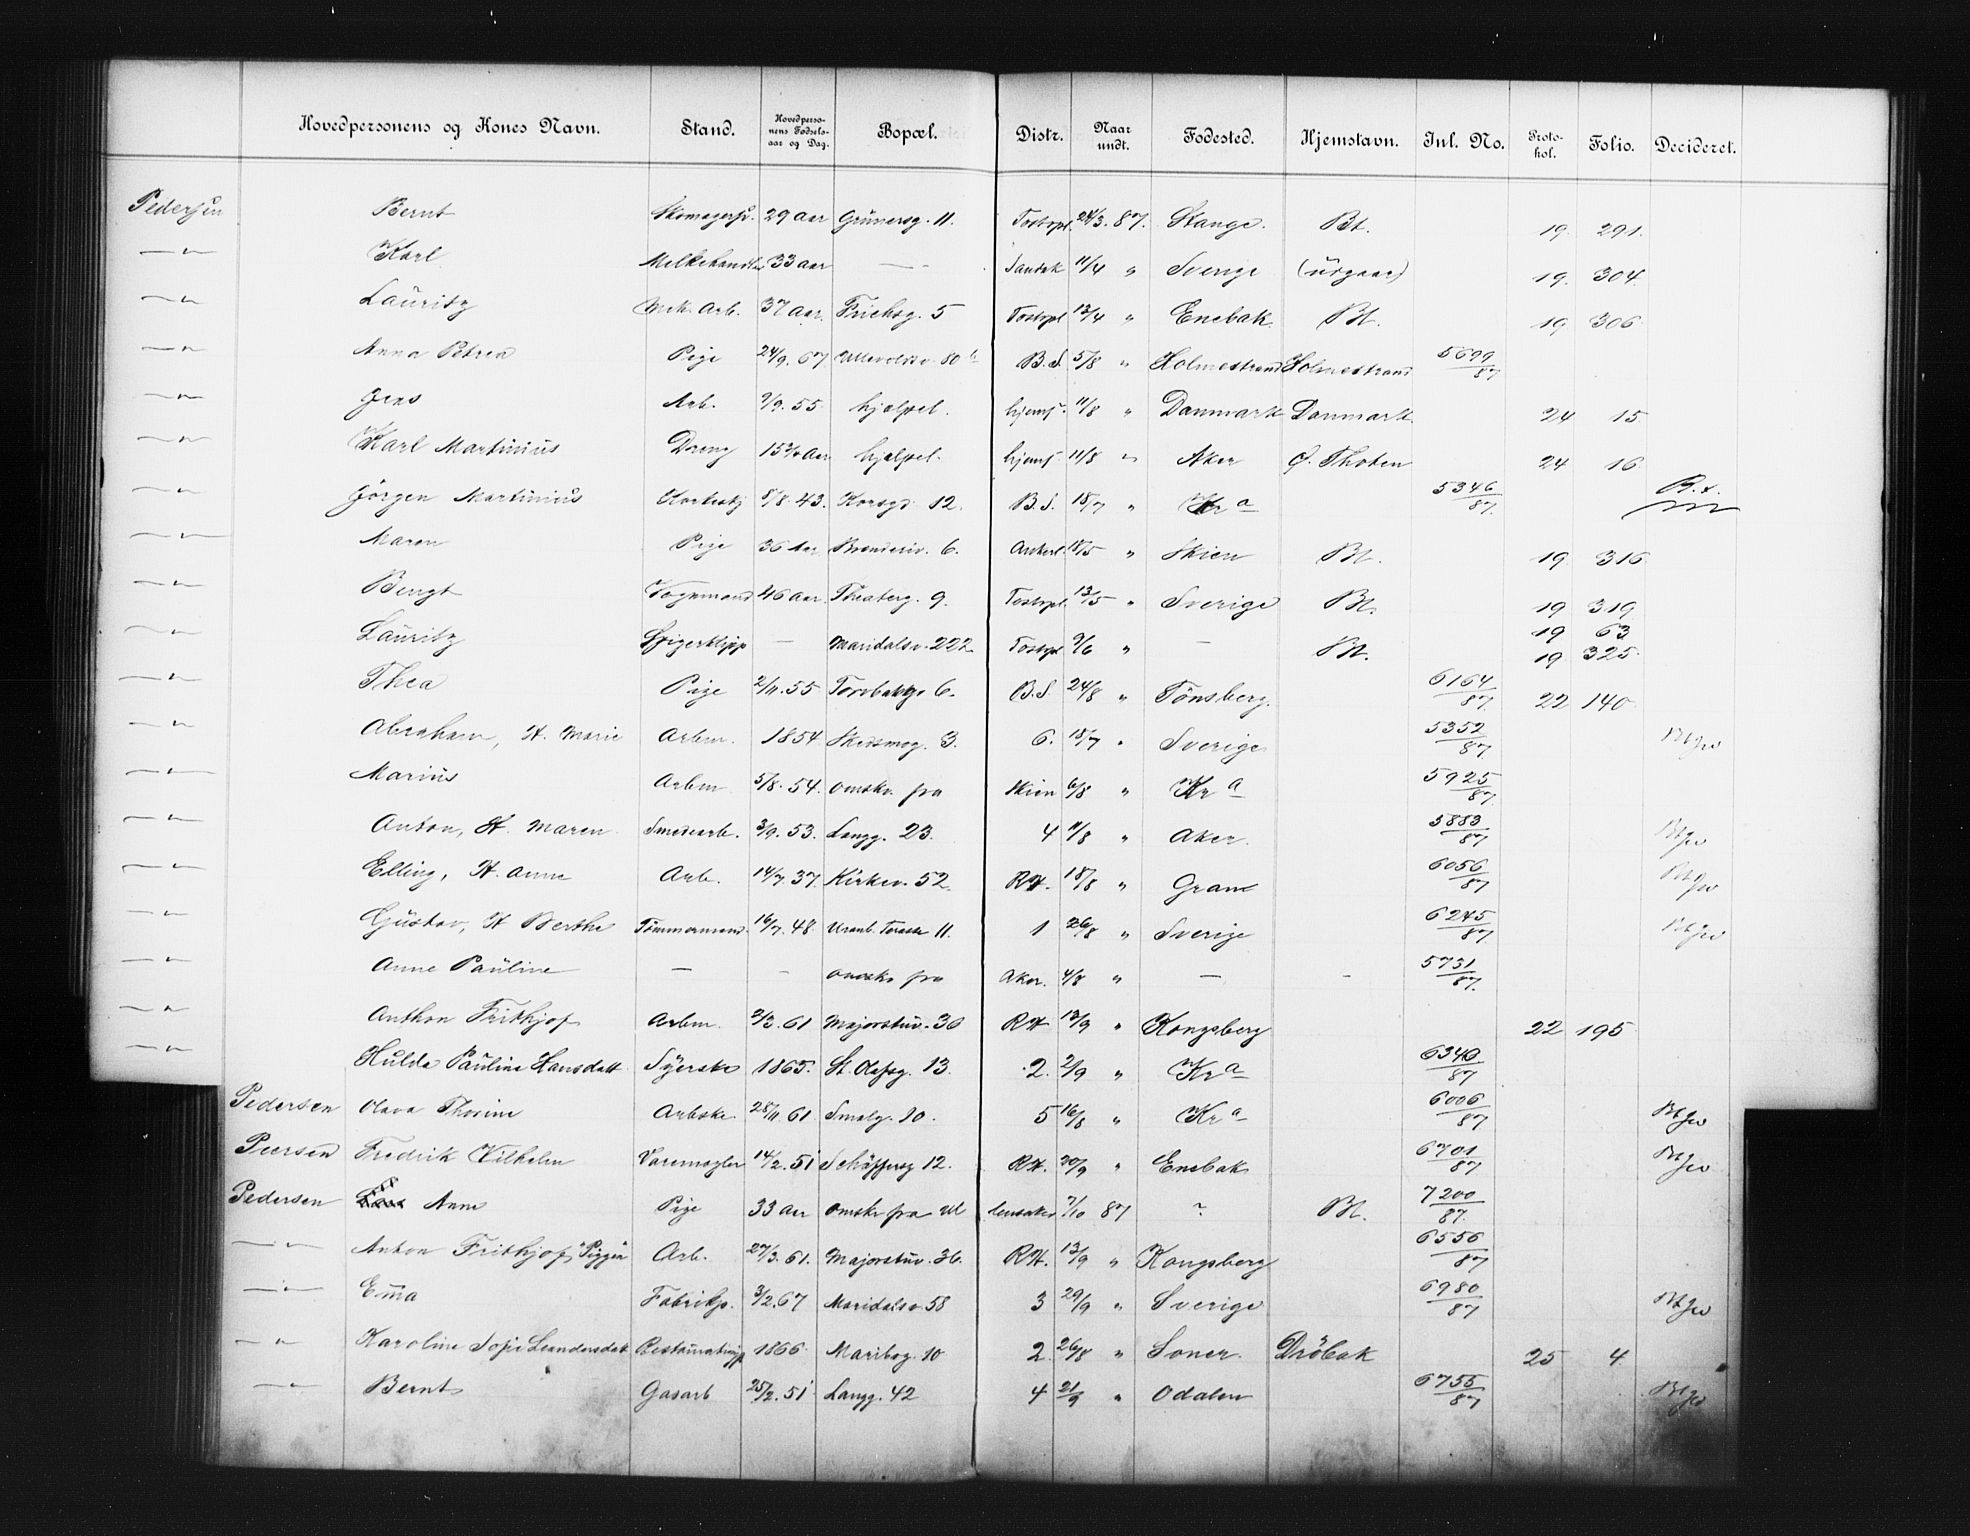 Hovedpersonens og Kones Navn. Stand. Hovedpersonens Fødselsaar og Dag. Bopæl. Distr. Naar undt. Fødested. Hjemstavn. Inl. No. Protokol. Folio. Decideret.
Pedersen Bernt 29 aar Grünersg. 11. Tostrpl. 24/3. 87. Stange. Bt. 19. 291.
—"— Karl Melkehandler 33 aar — Sandak 11/4 " Sverige (udgaar) 19. 304.
—"— Lauritz Mek. Arb. 37 aar. Frichsg. 5 Tostrpl 12/4 " Enebak Bt. 19 306.
—"— Anna Petrea Pige 24/9. 67 Ullevoldsv. 80 b B.S. 5/8 " Holmestrand Holmestrand 5699/87
—"— Jens Arb. 9/9. 55. hjælpel. hjemf. 11/8 " Danmark Danmark 24 15.
—"— Karl Martinius Dreng hjælpel. hjemf. 11/8 " Aker Ø. Thoten 24 16.
—"— Jörgen Martinius 8/8. 43. Korsgd. 12. B.S. 18/7 " Kra 5346/87. B.t.
—"— Maren Pige 36 Aar 6. Ankerl. 18/5 " Skien Bt. 19 316
—"— Bengt Vognmand 46 aar. Theaterg. 9. Tostrpl. 13/5 " Sverige Bt. 19 319
—"— Lauritz Spigerklipp — Maridalsv. 222. Tostrpl 9/6 " — Bt. 19 63 19 325.
—"— Thea Pige 2/11. 55 Torvbakkg. 6. B.S 24/8 " Tönsberg. 6164/87. 22 140.
—"— Abraham, H. Marie Arbm. 1854. Skedsmog. 3. 6. 18/7 " Sverige 5352/87. Bt Jw
—"— Marius Arbm. 5/8. 54. omskr. fra Skien 6/8 " Kra 5925/87.
—"— Anton, H. Maren Smedearb. 3/9. 53. Langg. 23. 4 11/8 " Aker. 5883/87 Bt Jw
—"— Elling, H. Anne Arb. 14/7. 37. Kirkev. 52. RH. 18/8 " Gran 6056/87 Bt Jw
—"— Gustav, H Berthe Tömmermand. 16/7. 48. Uranb. Terasse 11. 1 26/8 " Sverige 6245/87. Bt Jw
—"— Anne Pauline — — omskr fra Aker. 4/8 " — — 5731/87.
—"— Anthon Frithjof Arbm. 61 Majorstuv. 36 RH 13/9 " Kongsberg 22 195
—"— Hulda Pauline Hansdatt. Syerske 1865. St. Olafsg. 13. 2. 2/9 " Kra 6340/87
Pedersen Olava Thorine Arbske. 28/11. 61. Smalg. 10. 5 16/8 " Kra 6006/87 Bt Jw
Peersen Fredrik Vilhelm Varemægler 14/2. 51 Schäffersg 12. RH. 20/9 " Enebak 6701/87 Bt Jw
Pedersen Anne Pige 33 aar omskr fra Ullensaker 7/10 87 ? Bt. 7200/87.
—"— Anton Frithjof, "Piggen" Arb. 27/3. 61. Majorstuv. 36. RH. 13/9 " Kongsberg 6556/87
—"— Emma Fabrikp. 3/2. 67 Maridalsv 58 3 29/9 " Sverige 6980/87 Bt Jw
—"— Karoline Sofie Leandersdat. 1866. Maribog. 10 2. 26/8 " Soner. Dröbak 25 4
—"— Bernt Gasarb 25/2. 51 Langg. 42 4 21/9 " Odalen 6755/87 Bt Jw